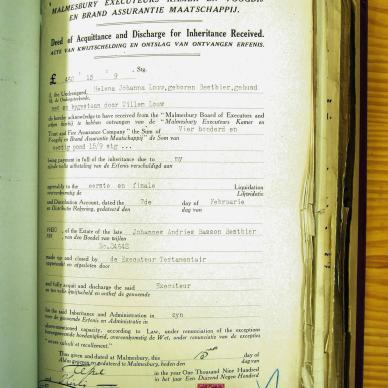 MALMESBURY EXECUTEURS KAMER EN VOOGDIJ
EN BRAND ASSURANTIE MAATSCHAPPIJ.
Deed of Acquittance and Discharge for Inheritance Received.
ACTE VAN KWIJTSCHELDING EN ONTSLAG VAN ONTVANGEN ERFENIS.
£ 15 9 . Stg.
I, the Undersigned, Helena Johanna Louw, geboren Besthier, gehuwd
Ik, de Ondergetekende,
door Willem Louw
do hereby acknowledge to have received from the "Malmesbury Board of Executors and
erken hierbij te hebben ontvangen van de "Malmesbury Executeurs Kamer en
Trust and Fire Assurance Company" the Sum of Vier honderd en
Voogdij en Brand Assurantie Maatschappij" de Som van
pond 15/9 stg ...
being payment in full of the inheritance due to my
zijnde volle uitbetaling van de Erfenis verschuldigd aan
agreeably to the eerste en finale Liquidation
overeenkomstig de Likwidatie
and Distribution Account, dated the 7de day of Februarie
en Distributie Rekening, gedateerd den dag van
of the Estate of the late Johannes Andries Basson Besthier
van den Boedel van wijlen
No.24642
made up and closed by de Executeur Testamentair
opgemaakt en afgesloten door
and fully acquit and discharge the said Executeur
en ten volle kwijtscheld en onthef de genoemde
for the said Inheritance and Administration in zyn
voor de genoemde Erfenis en Administratie in
abovementioned capacity, according to Law, under renunciation of the exceptions
bovengemelde hoedanigheid, overeenkomstig de Wet, onder renunciatie van de exceptien
Thus given and dated at Malmesbury, this day of
Aldus gegeven en gedateerd te Malmesbury, heden den dag van
in the year One Thousand Nine Hundred
in het jaar Een Duizend Negen Honderd